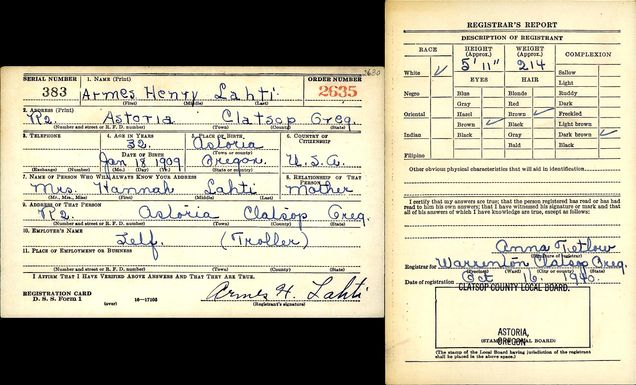 2680
SERIAL NUMBER 1. NAME (Print) ORDER NUMBER
383 Armes Henry Lahti 2635
(First) (Middle) (Last)
2. ADDRESS (Print)
R2. Astoria Clatsop Oreg.
(Number and street or R. F. D. number) (Town) (County) (State)
3. TELEPHONE 4. AGE IN YEARS 5. PLACE OF BIRTH 6. COUNTRY OF CITIZENSHIP
32. Astoria
DATE OF BIRTH (Town or county)
Jan 18 1909 Oregon. U.S.A.
(Exchange) (Number) (Mo.) (Day) (Yr.) (State or country)
7. NAME OF PERSON WHO WILL ALWAYS KNOW YOUR ADDRESS 8. RELATIONSHIP OF THAT PERSON
Mrs. Hannah Lahti Mother
(Mr., Mrs., Miss) (First) (Middle) (Last)
9. ADDRESS OF THAT PERSON
R2. Astoria Clatsop Oreg.
(Number and street or R. F. D. number) (Town) (County) (State)
10. EMPLOYER'S NAME
Self. (Troller)
11. PLACE OF EMPLOYMENT OR BUSINESS
(Number and street or R. F. D. number) (Town) (County) (State)
I AFFIRM THAT I HAVE VERIFIED ABOVE ANSWERS AND THAT THEY ARE TRUE.
REGISTRATION CARD
D. S. S. Form 1 (over) 16—17105 Armes H. Lahti
(Registrant's signature)
REGISTRAR'S REPORT
DESCRIPTION OF REGISTRANT
RACE HEIGHT (Approx.) WEIGHT (Approx.) COMPLEXION
5' 11" 214
White ✓ EYES HAIR Sallow
Light
Negro Blue Blonde Ruddy
Gray Red Dark
Oriental Hazel Brown ✓ Freckled
Brown ✓ Black Light brown
Indian Black Gray Dark brown ✓
Bald Black
Filipino
Other obvious physical characteristics that will aid in identification
I certify that my answers are true; that the person registered has read or has had
read to him his own answers; that I have witnessed his signature or mark and that
all of his answers of which I have knowledge are true, except as follows:
Anna Tetlow
(Signature of registrar)
Registrar for Warrenton Clatsop Oreg.
(Precinct) (Ward) (City or county) (State)
Date of registration Oct 16 1940
CLATSOP COUNTY LOCAL BOARD.
ASTORIA,
OREGON
(STAMP OF LOCAL BOARD)
(The stamp of the Local Board having jurisdiction of the registrant
shall be placed in the above space.)